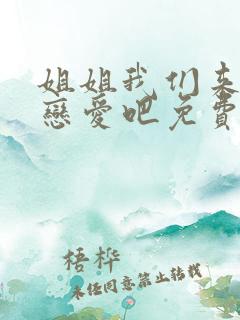 姐姐我们来
戀愛吧免費
梧桦
未经同意禁止转载